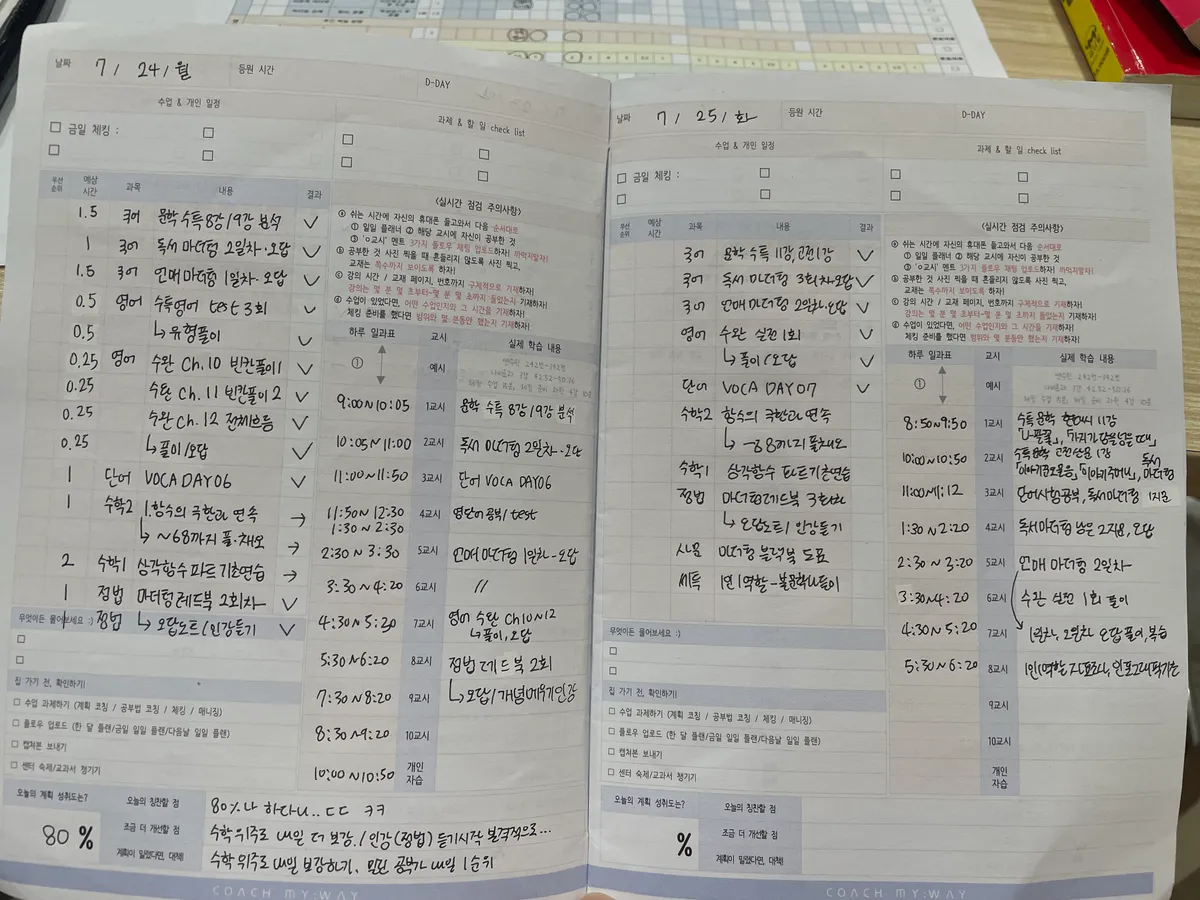 날짜 7/ 24/ 월 등원 시간 D-DAY
수업 & 개인 일정 과제 & 할 일 check list
□ 금일 체킹 : □ □ □
□ □ □ □
우선순위 예상시간 과목 내용 결과
1.5 국어 문학 수특 8강/9강 분석 ✓
1 국어 독서 마더텅 2일차·오답 ✓
1.5 국어 언매 마더텅 1일차·오답 ✓
0.5 영어 수특영어 test 3회 ✓
0.5 ↳유형풀이 ✓
0.25 영어 수완 Ch.10 빈칸풀이1 ✓
0.25 수완 Ch.11 빈칸풀이2 ✓
0.25 수완 Ch.12 전체흐름 ✓
0.25 ↳풀이/오답 ✓
1 단어 VOCA DAY06 ✓
1 수학2 1.함수의 극한과 연속 →
↳~68까지 풀·채오 →
2 수학1 삼각함수 파트 기초연습 →
1 정법 마더텅레드북 2회차 ✓
1 정법 ↳오답노트/인강듣기 ✓
무엇이든 물어보세요 :)
□
□
집 가기 전, 확인하기!
□ 수업 과제하기 (계획 코칭 / 공부법 코칭 / 체킹 / 매니징)
□ 플로우 업로드 (한 달 플랜/금일 일일 플랜/다음날 일일 플랜)
□ 캡쳐본 보내기
□ 센터 숙제/교과서 챙기기
<실시간 점검 주의사항>
ⓐ 쉬는 시간에 자신의 휴대폰 들고와서 다음 순서대로
① 일일 플래너 ② 해당 교시에 자신이 공부한 것
③ 'o교시' 멘트 3가지 플로우 채팅 업로드하자! 까먹지말자!
ⓑ 공부한 것 사진 찍을 때 흔들리지 않도록 사진 찍고,
교재는 쪽수까지 보이도록 하자!
ⓒ 강의 시간 / 교재 페이지, 번호까지 구체적으로 기재하자!
강의는 몇 분 몇 초부터~몇 분 몇 초까지 들었는지 기재하자!
ⓓ 수업이 있었다면, 어떤 수업인지와 그 시간을 기재하자!
체킹 준비를 했다면 범위와 몇 분동안 했는지 기재하자!
하루 일과표 교시 실제 학습 내용
① 예시
9:00~10:05 1교시 문학 수특 8강/9강 분석
10:05~11:00 2교시 독서 마더텅 2일차·오답
11:00~11:50 3교시 단어 VOCA DAY06
11:50~12:30
1:30~2:30 4교시 영단어 공부/test
2:30~3:30 5교시 언매 마더텅 1일차-오답
3:30~4:20 6교시 〃
4:30~5:20 7교시 영어 수완 Ch10~12
↳풀이,오답
5:30~6:20 8교시 정법 레드북 2회
7:30~8:20 9교시 ↳오답/개념메우기인강
8:30~9:20 10교시
10:00~10:50 개인 자습
오늘의 계획 성취도는? 80 %
오늘의 칭찬할 점 80%나 하다니..ㄷㄷ ㅋㅋ
조금 더 개선할 점 수학위주로 내일 더 보강/인강(정법) 듣기시작 본격적으로...
계획이 밀렸다면, 대책! 수학 위주로 내일 보강하기, 밀린 공부가 내일 1순위
COACH MY:WAY
날짜 7/ 25/ 화 등원 시간 D-DAY
수업 & 개인 일정 과제 & 할 일 check list
□ 금일 체킹 : □ □ □
□ □ □ □
우선순위 예상시간 과목 내용 결과
국어 문학 수특 11강,고전1강 ✓
국어 독서 마더텅 3일차·오답 ✓
국어 언매 마더텅 2일차·오답 ✓
영어 수완 실전 1회 ✓
↳풀이/오답 ✓
단어 VOCA DAY07 ✓
수학2 함수의 극한과 연속
↳~88까지 풀채오
수학1 삼각함수 파트기초연습
정법 마더텅레드북 3회차
↳오답노트/인강듣기
사문 마더텅 블랙북 도표
무엇이든 물어보세요 :)
□
□
집 가기 전, 확인하기!
□ 수업 과제하기 (계획 코칭 / 공부법 코칭 / 체킹 / 매니징)
□ 플로우 업로드 (한 달 플랜/금일 일일 플랜/다음날 일일 플랜)
□ 캡쳐본 보내기
□ 센터 숙제/교과서 챙기기
<실시간 점검 주의사항>
ⓐ 쉬는 시간에 자신의 휴대폰 들고와서 다음 순서대로
① 일일 플래너 ② 해당 교시에 자신이 공부한 것
③ 'o교시' 멘트 3가지 플로우 채팅 업로드하자! 까먹지말자!
ⓑ 공부한 것 사진 찍을 때 흔들리지 않도록 사진 찍고,
교재는 쪽수까지 보이도록 하자!
ⓒ 강의 시간 / 교재 페이지, 번호까지 구체적으로 기재하자!
강의는 몇 분 몇 초부터~몇 분 몇 초까지 들었는지 기재하자!
ⓓ 수업이 있었다면, 어떤 수업인지와 그 시간을 기재하자!
체킹 준비를 했다면 범위와 몇 분동안 했는지 기재하자!
하루 일과표 교시 실제 학습 내용
① 예시
8:50~9:50 1교시 수특문학 현대시 11강
10:00~10:50 2교시 수특문학 고전산문 1강 독서 마더텅
11:00~11:12 3교시 단어시험공부, 독서마더텅 1지문
1:30~2:20 4교시 독서마더텅 남은 2지문, 오답
2:30~3:20 5교시 언매 마더텅 2일차
3:30~4:20 6교시 수완 실전 1회 풀이
4:30~5:20 7교시 1일차, 2일차 오답풀이, 복습
5:30~6:20 8교시 1인1역할
9교시
10교시
개인 자습
오늘의 계획 성취도는? %
오늘의 칭찬할 점
조금 더 개선할 점
계획이 밀렸다면, 대책!
COACH MY:WAY